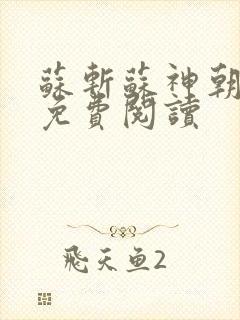 蘇斬蘇神朝
免費閱讀
飛天鱼2